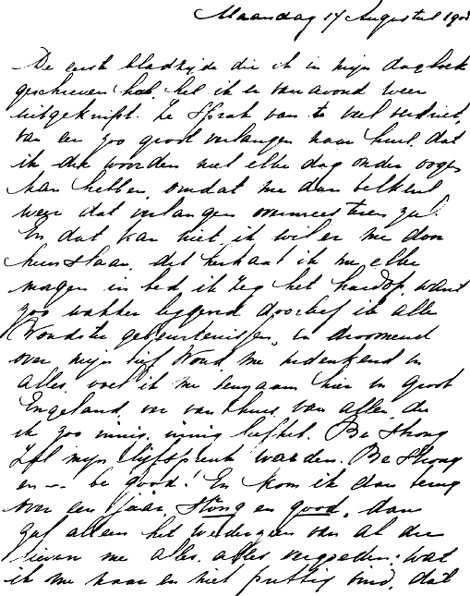 Maandag 17 Augustus 190
De eerste bladzijde die ik in mijn dagboek
geschreven heb, heb ik er van avond weer
uitgeknipt. Ze sprak van te veel verdriet,
van een zoo groot verlangen naar huis, dat
ik die woorden niet elke dag onder oogen
kan hebben, omdat me dan telkens
weer dat verlangen overmeesteren zal.
En dat kan niet, ik wil er me door
heen slaan, dit herhaal ik me elke
morgen in bed ik zeg het hardop, want
zoo wakker liggend doorleef ik alle
gebeurtenissen, en droomend
over mijn lijf me bedenkend in
alles, voel ik me eenzaam hier in groot
Engeland, ver van huis van allen, die
ik zoo innig, innig liefheb. Be Strong
zal mijn lijfspreuk worden. Be Strong
en -- be good! En kom ik dan terug
over een jaar, strong en good, dan
zal alleen het wederzien van al die
lieven me alles, alles vergoeden: wat
ik me naar en niet prettig vind, dat